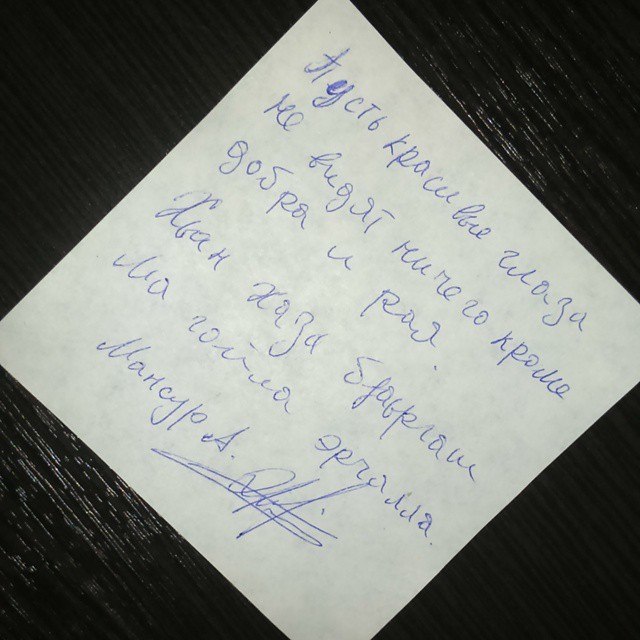 Пусть красивые глаза
не видят ничего кроме
добра и рая.
Хьан хаза бӀаьргаш
Ма гойла эрчалла.
Мансур А.